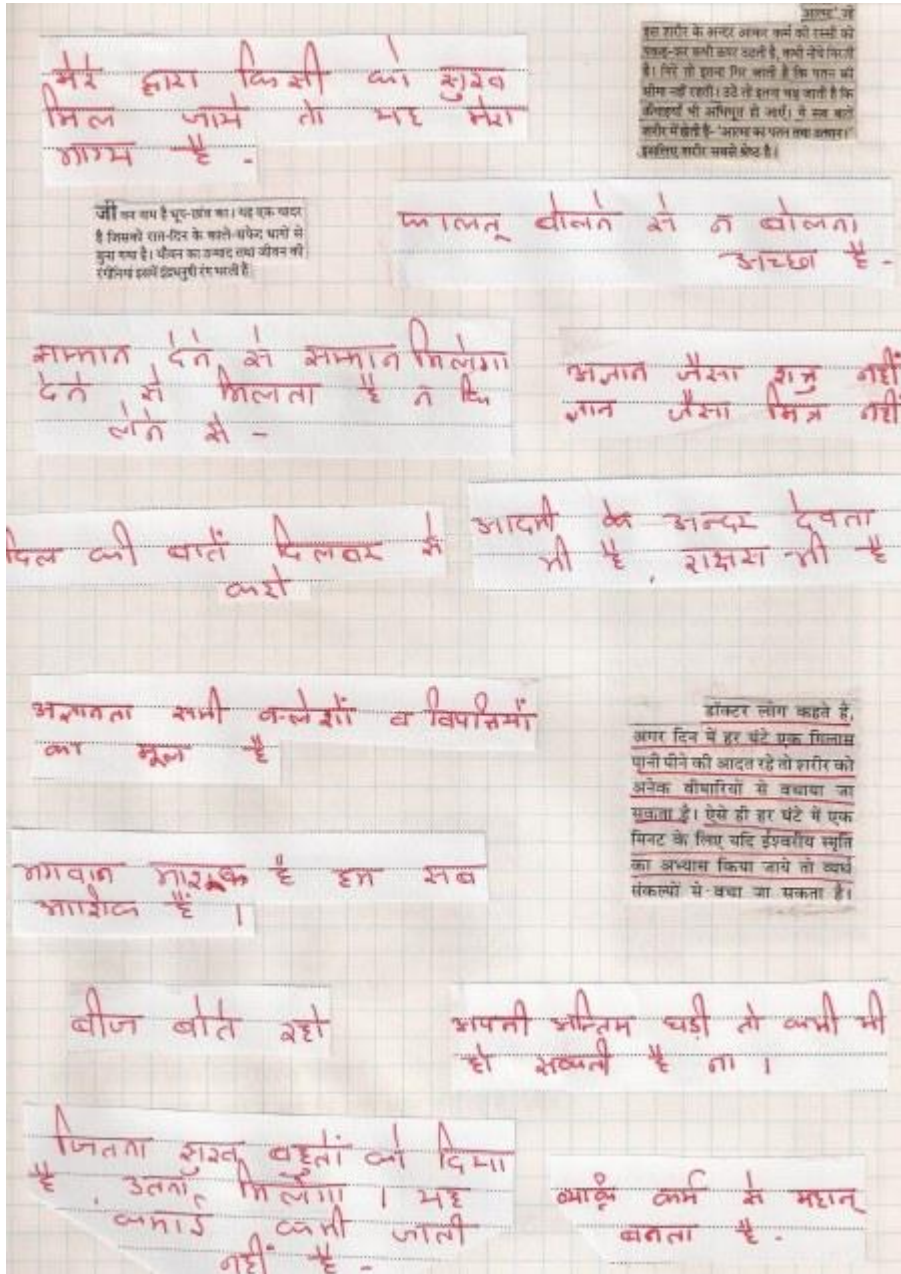 मेरे द्वारा किसी को सुख
मिल जाये तो यह मेरा
भाग्य है -
'आत्मा' जो
इस शरीर के अन्दर आकर कर्म की रस्सी को
पकड़-कर कभी ऊपर उठती है, कभी नीचे गिरती
है। गिरे तो इतना गिर जाती है कि पतन की
सीमा नहीं रहती। उठे तो इतना चढ़ जाती है कि
ऊँचाइयाँ भी अभिभूत हो जाएँ। ये सब बातें
शरीर में होती है- 'आत्मा का पतन तथा उत्थान।'
इसलिए शरीर सबसे श्रेष्ठ है।
जीवन नाम है धूप-छांव का। यह एक चादर
है जिसको रात-दिन के काले-सफेद धागों से
बुना गया है। यौवन का उन्माद तथा जीवन की
रंगीनियां इसमें इंद्रधनुषी रंग भरती हैं
फालतू बोलने से न बोलना
अच्छा है -
सम्मान देने से सम्मान मिलेगा
देने से मिलता है न कि
लेने से -
अज्ञान जैसा शत्रु नहीं
ज्ञान जैसा मित्र नहीं
दिल की बातें दिलबर से
करो
आदमी के अन्दर देवता
भी है, राक्षस भी है
अज्ञानता सभी क्लेशों व विपत्तियों
का मूल है
डॉक्टर लोग कहते हैं,
अगर दिन में हर घंटे एक गिलास
पानी पीने की आदत रहे तो शरीर को
अनेक बीमारियों से बचाया जा
सकता है। ऐसे ही हर घंटे में एक
मिनट के लिए यदि ईश्वरीय स्मृति
का अभ्यास किया जाये तो व्यर्थ
संकल्पों से बचा जा सकता है।
भगवान माशूक है हम सब
आशिक हैं ।
बीज बोते रहो
अपनी अन्तिम घड़ी तो कभी भी
हो सकती है ना ।
जितना सुख बहुतों को दिया
है, उतना मिलेगा । यह
कमाई कभी जाती
नहीं है -
कर्म से महान्
बनता है -